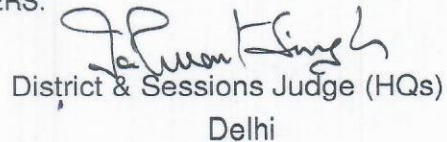 ERS.
District & Sessions Judge (HQs)
Delhi